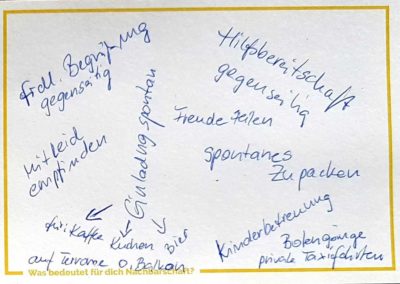 frdl. Begrüßung
gegenseitig
Mitleid
empfinden
Einladung spontan
für: Kaffe Kuchen Bier
auf Terrasse o. Balkon
Hilfsbereitschaft
gegenseitig
Freude teilen
spontanes
Zupacken
Kinderbetreuung
Botengänge
private Taxifahrten
Was bedeutet für dich Nachbarschaft?